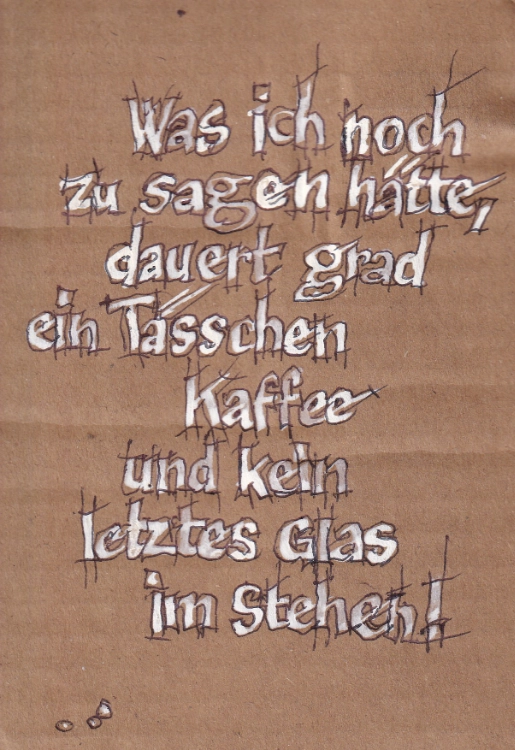 Was ich noch
zu sagen hätte,
dauert grad
ein Tässchen
Kaffee
und kein
letztes Glas
im Stehen!